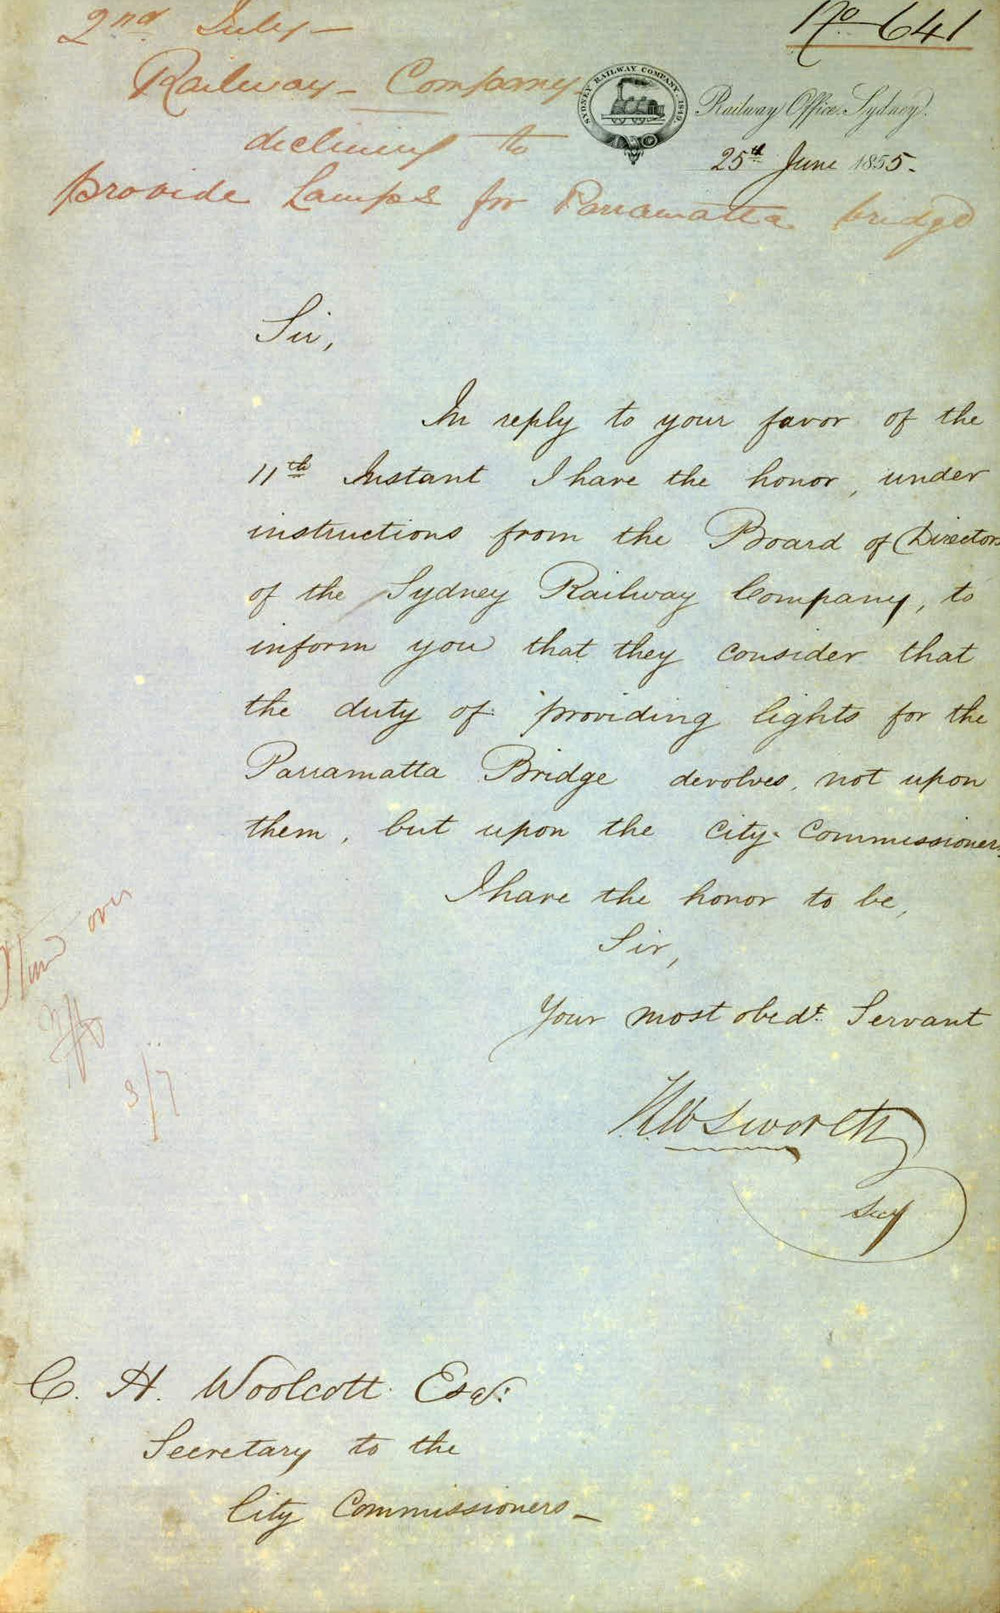 No 641
2nd July —
Railway Company
declining to
provide Lamps for Parramatta bridge
SYDNEY RAILWAY COMPANY. 1849.
Railway Office. Sydney.
25th June 1855.
Sir,
In reply to your favor of the
11th Instant I have the honor, under
instructions from the Board of Directors
of the Sydney Railway Company, to
inform you that they consider that
the duty of providing lights for the
Parramatta Bridge devolves, not upon
them, but upon the City Commissioners.
I have the honor to be,
Sir,
Your most obedt. Servant
Secy
over
3/7
C. H. Woolcott Esqr.
Secretary to the
City Commissioners —